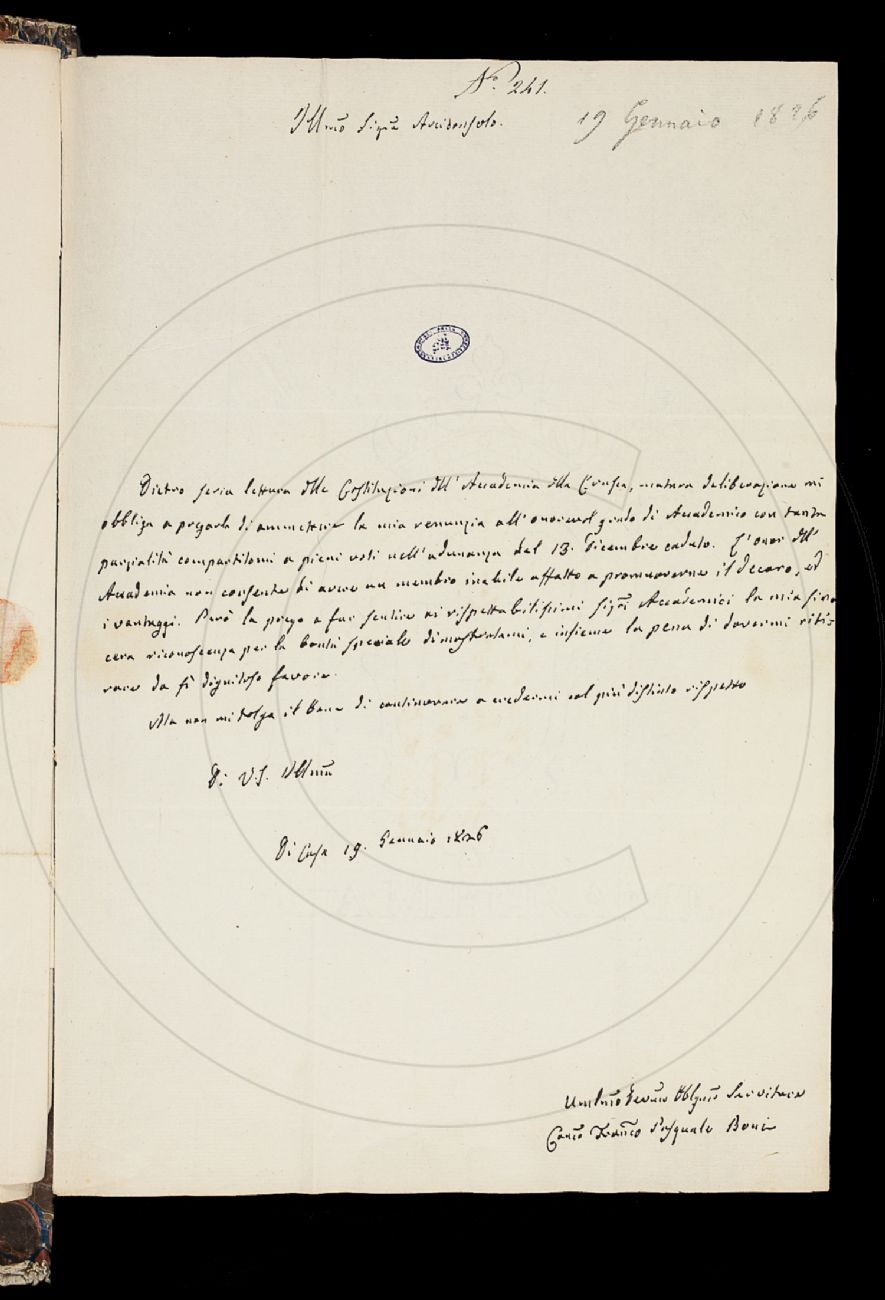 N.° 241.
Illmo Sigre Arciconsolo.
19 Gennaio 1826
Dietro seria lettura delle Costituzioni dell'Accademia della Crusca, matura deliberazione mi
obbliga a pregarla di ammettere la mia renunzia all'onorevol grado di Accademico con tanta
parzialità compartitomi a pieni voti nell'adunanza del 13. Dicembre caduto. L'onor dell'
Accademia non consente di avere un membro inabile affatto a promuoverne il decoro, ed
i vantaggi. Però la prego a far sentire ai rispettabilissimi Sigri Accademici la mia sin=
cera riconoscenza per la bontà speciale dimostratami, e insieme la pena di dovermi riti=
rare da sì dignitoso favore.
Ella non mi tolga il bene di continovare a credermi col più distinto rispetto
Di V.S. Illma
Di Casa 19. Gennaio 1826
Umilmo Devmo Obblgmo Servitore
Canco Franco Pasquale Boni